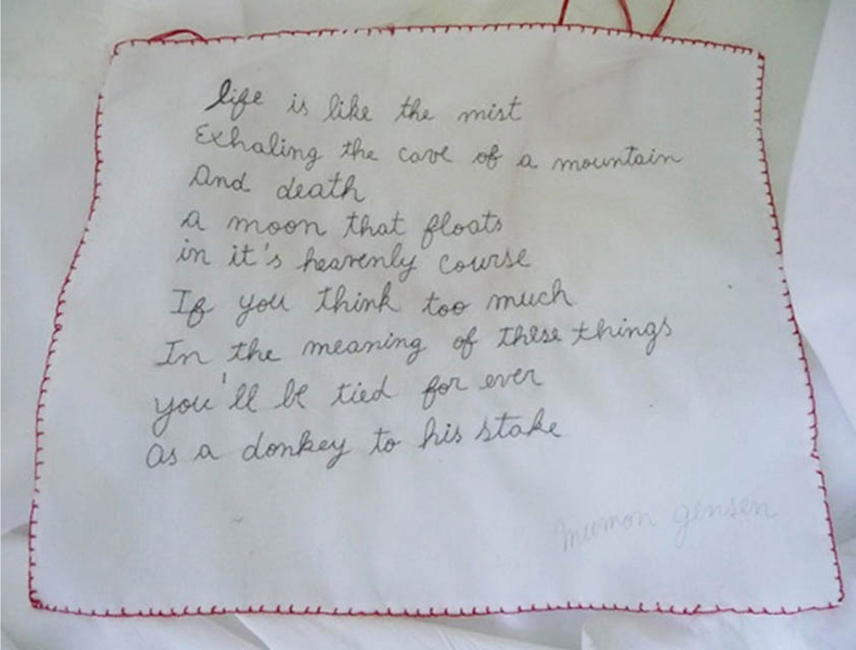 life is like the mist
Exhaling the cave of a mountain
And death
a moon that floats
in it's heavenly course
If you think too much
In the meaning of these things
you'll be tied for ever
as a donkey to his stake
mumon gensen